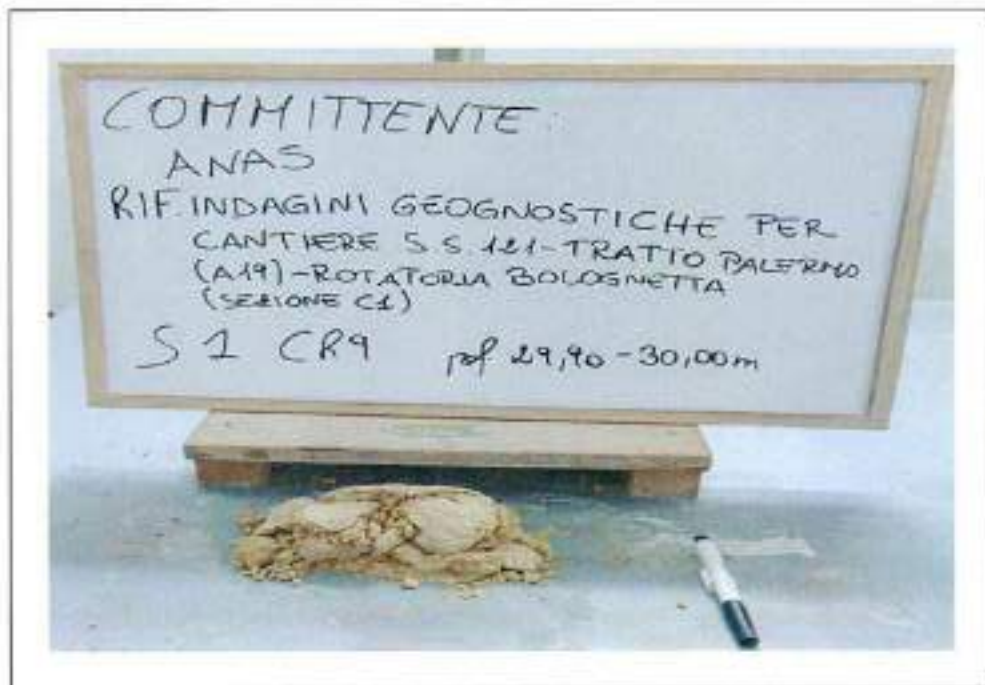 COMMITTENTE:
ANAS
RIF. INDAGINI GEOGNOSTICHE PER
CANTIERE S.S. 121 - TRATTO PALERMO
(A19) - ROTATORIA BOLOGNETTA
(SEZIONE C1)
S1 CR9 prof 29,90 - 30,00m